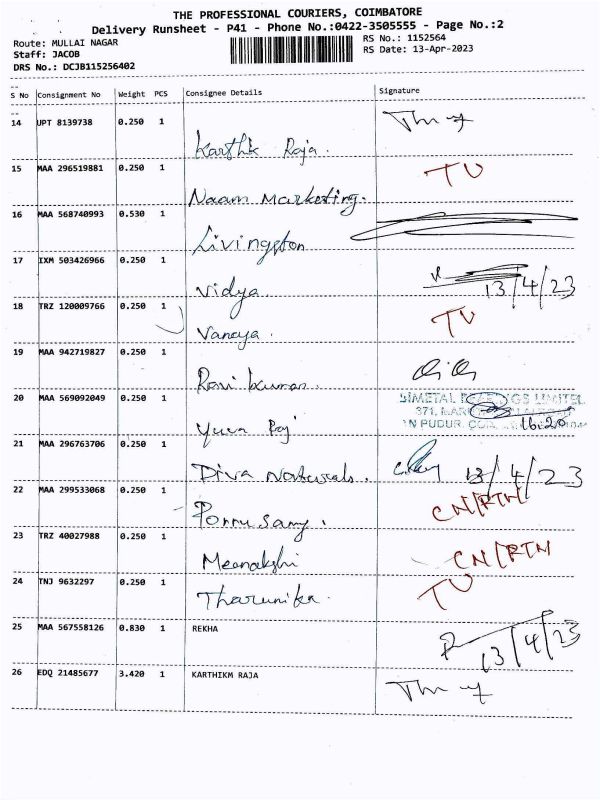 THE PROFESSIONAL COURIERS, COIMBATORE
Delivery Runsheet - P41 - Phone No.:0422-3505555 - Page No.:2
Route: MULLAI NAGAR
RS No.: 1152564
Staff: JACOB
RS Date: 13-Apr-2023
DRS No.: DCJB115256402
S No Consignment No Weight PCS Consignee Details Signature
14 UPT 8139738 0.250 1
Karthk Raja.
15 MAA 296519881 0.250 1 TU
Naam Marketing.
16 MAA 568740993 0.530 1
Livingston
17 IXM 503426966 0.250 1
Vidya. 13/4/23
18 TRZ 120009766 0.250 1 TU
Vaneya.
19 MAA 942719827 0.250 1
Ravi kumar.
20 MAA 569092049 0.250 1
371,
N PUDUR, 16:20
Yuva Raj
21 MAA 296763706 0.250 1
Diva Naturals. 13/4/23
22 MAA 299533068 0.250 1 CN/RTN
Ponnu Samy.
23 TRZ 40027988 0.250 1 CN/RTN
Meenakshi
24 TNJ 9632297 0.250 1 TU
Tharunika.
25 MAA 567558126 0.830 1 REKHA
13/4/23
26 EDQ 21485677 3.420 1 KARTHIKM RAJA